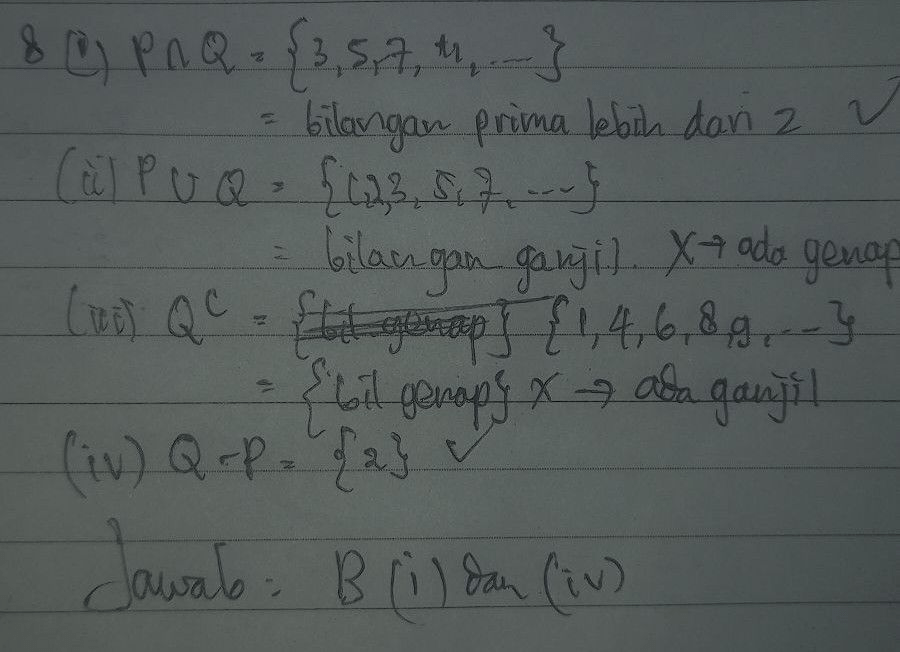 8 (i) P ∩ Q = {3, 5, 7, 11, ....}
= bilangan prima lebih dari 2 ✓
(ii) P ∪ Q = {1,2,3, 5, 7, ....}
= bilangan ganjil. X → ada genap
(iii) Q^C = {bil genap} {1, 4, 6, 8, 9, ...}
= {bil genap} X → ada ganjil
(iv) Q - P = {2} ✓
Jawab : B (i) dan (iv)